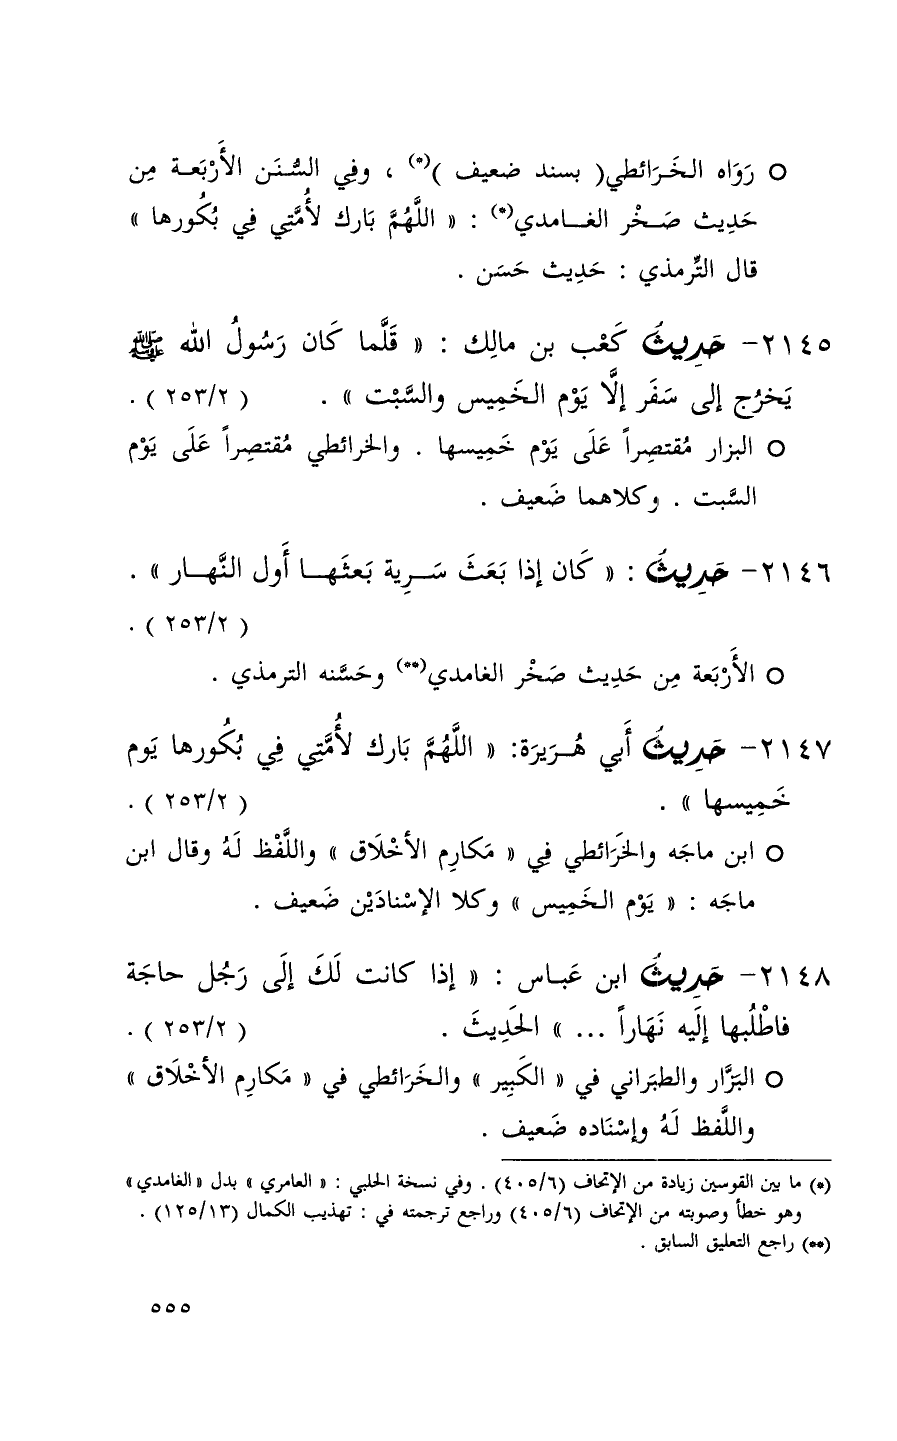 ○ رَوَاه الخَرَائطي( بسند ضعيف )(*) ، وفِي السُّنَن الأَرْبَعة مِن
حَدِيث صَخْر الغامدي(*) : « اللَّهُمَّ بَارك لأُمَّتِي فِي بُكُورها »
قال التِّرمذي : حَدِيث حَسَن .
٢١٤٥– حَدِيثُ كَعْب بن مالِك : « قَلَّما كَان رَسُولُ الله ﷺ
يَخرُج إلى سَفَر إلَّا يَوْم الخَمِيس والسَّبْت » . ( ٢٥٣/٢ ) .
○ البزار مُقتصِراً عَلَى يَوْم خَمِيسها . والخرائطي مُقتصِراً عَلَى يَوْم
السَّبت . وكلاهما ضَعيف .
٢١٤٦– حَدِيثُ : « كَان إذا بَعَثَ سَرِية بَعثَها أَول النَّهار » .
( ٢٥٣/٢ ) .
○ الأَرْبَعة مِن حَدِيث صَخْر الغامدي(**) وحَسَّنه الترمذي .
٢١٤٧– حَدِيثُ أَبي هُرَيرَة: « اللَّهُمَّ بَارك لأُمَّتِي فِي بُكُورها يَوم
خَمِيسها » . ( ٢٥٣/٢ ) .
○ ابن ماجَه والخَرَائطي فِي « مَكارِم الأخْلَاق » واللَّفْظ لَهُ وقال ابن
ماجَه : « يَوْم الخَمِيس » وكلا الإسْنادَيْن ضَعيف .
٢١٤٨– حَدِيثُ ابن عَباس : « إذا كانت لَكَ إلَى رَجُل حاجَة
فاطْلُبها إلَيه نَهَاراً ... » الحَدِيثَ . ( ٢٥٣/٢ ) .
○ البَزَّار والطبَراني في « الكَبِير » والخَرَائطي في « مَكارِم الأخْلاق »
واللَّفظ لَهُ وإسْنَاده ضَعيف .
(*) ما بين القوسين زيادة من الإتحاف (٤٠٥/٦) . وفي نسخة الحلبي : « العامري » بدل «الغامدي»
وهو خطأ وصوبته من الإتحاف (٤٠٥/٦) وراجع ترجمته في : تهذيب الكمال (١٢٥/١٣) .
(**) راجع التعليق السابق .
٥٥٥